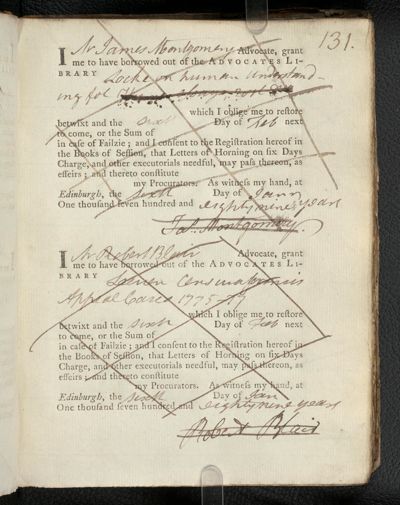 131.
I Mr James Montgomery Advocate, grant
me to have borrowed out of the ADVOCATES LI-
BRARY Locke on human Understand-
ing fol
which I oblige me to restore
betwixt and the sixth Day of Feb next
to come, or the Sum of
in case of Failzie; and I consent to the Registration hereof in
the Books of Session, that Letters of Horning on six Days
Charge, and other executorials needful, may pass thereon, as
effeirs; and thereto constitute
my Procurators. As witness my hand, at
Edinburgh, the sixth Day of Jany
One thousand seven hundred and eighty nine years
Jas. Montgomery.
I Mr Robert Blair Advocate, grant
me to have borrowed out of the ADVOCATES LI-
BRARY
Appeal Cases 1775-
which I oblige me to restore
betwixt and the sixth Day of Feb next
to come, or the Sum of
in case of Failzie; and I consent to the Registration hereof in
the Books of Session, that Letters of Horning on six Days
Charge, and other executorials needful, may pass thereon, as
effeirs; and thereto constitute
my Procurators. As witness my hand, at
Edinburgh, the sixth Day of Jan
One thousand seven hundred and eighty nine years
Robert Blair